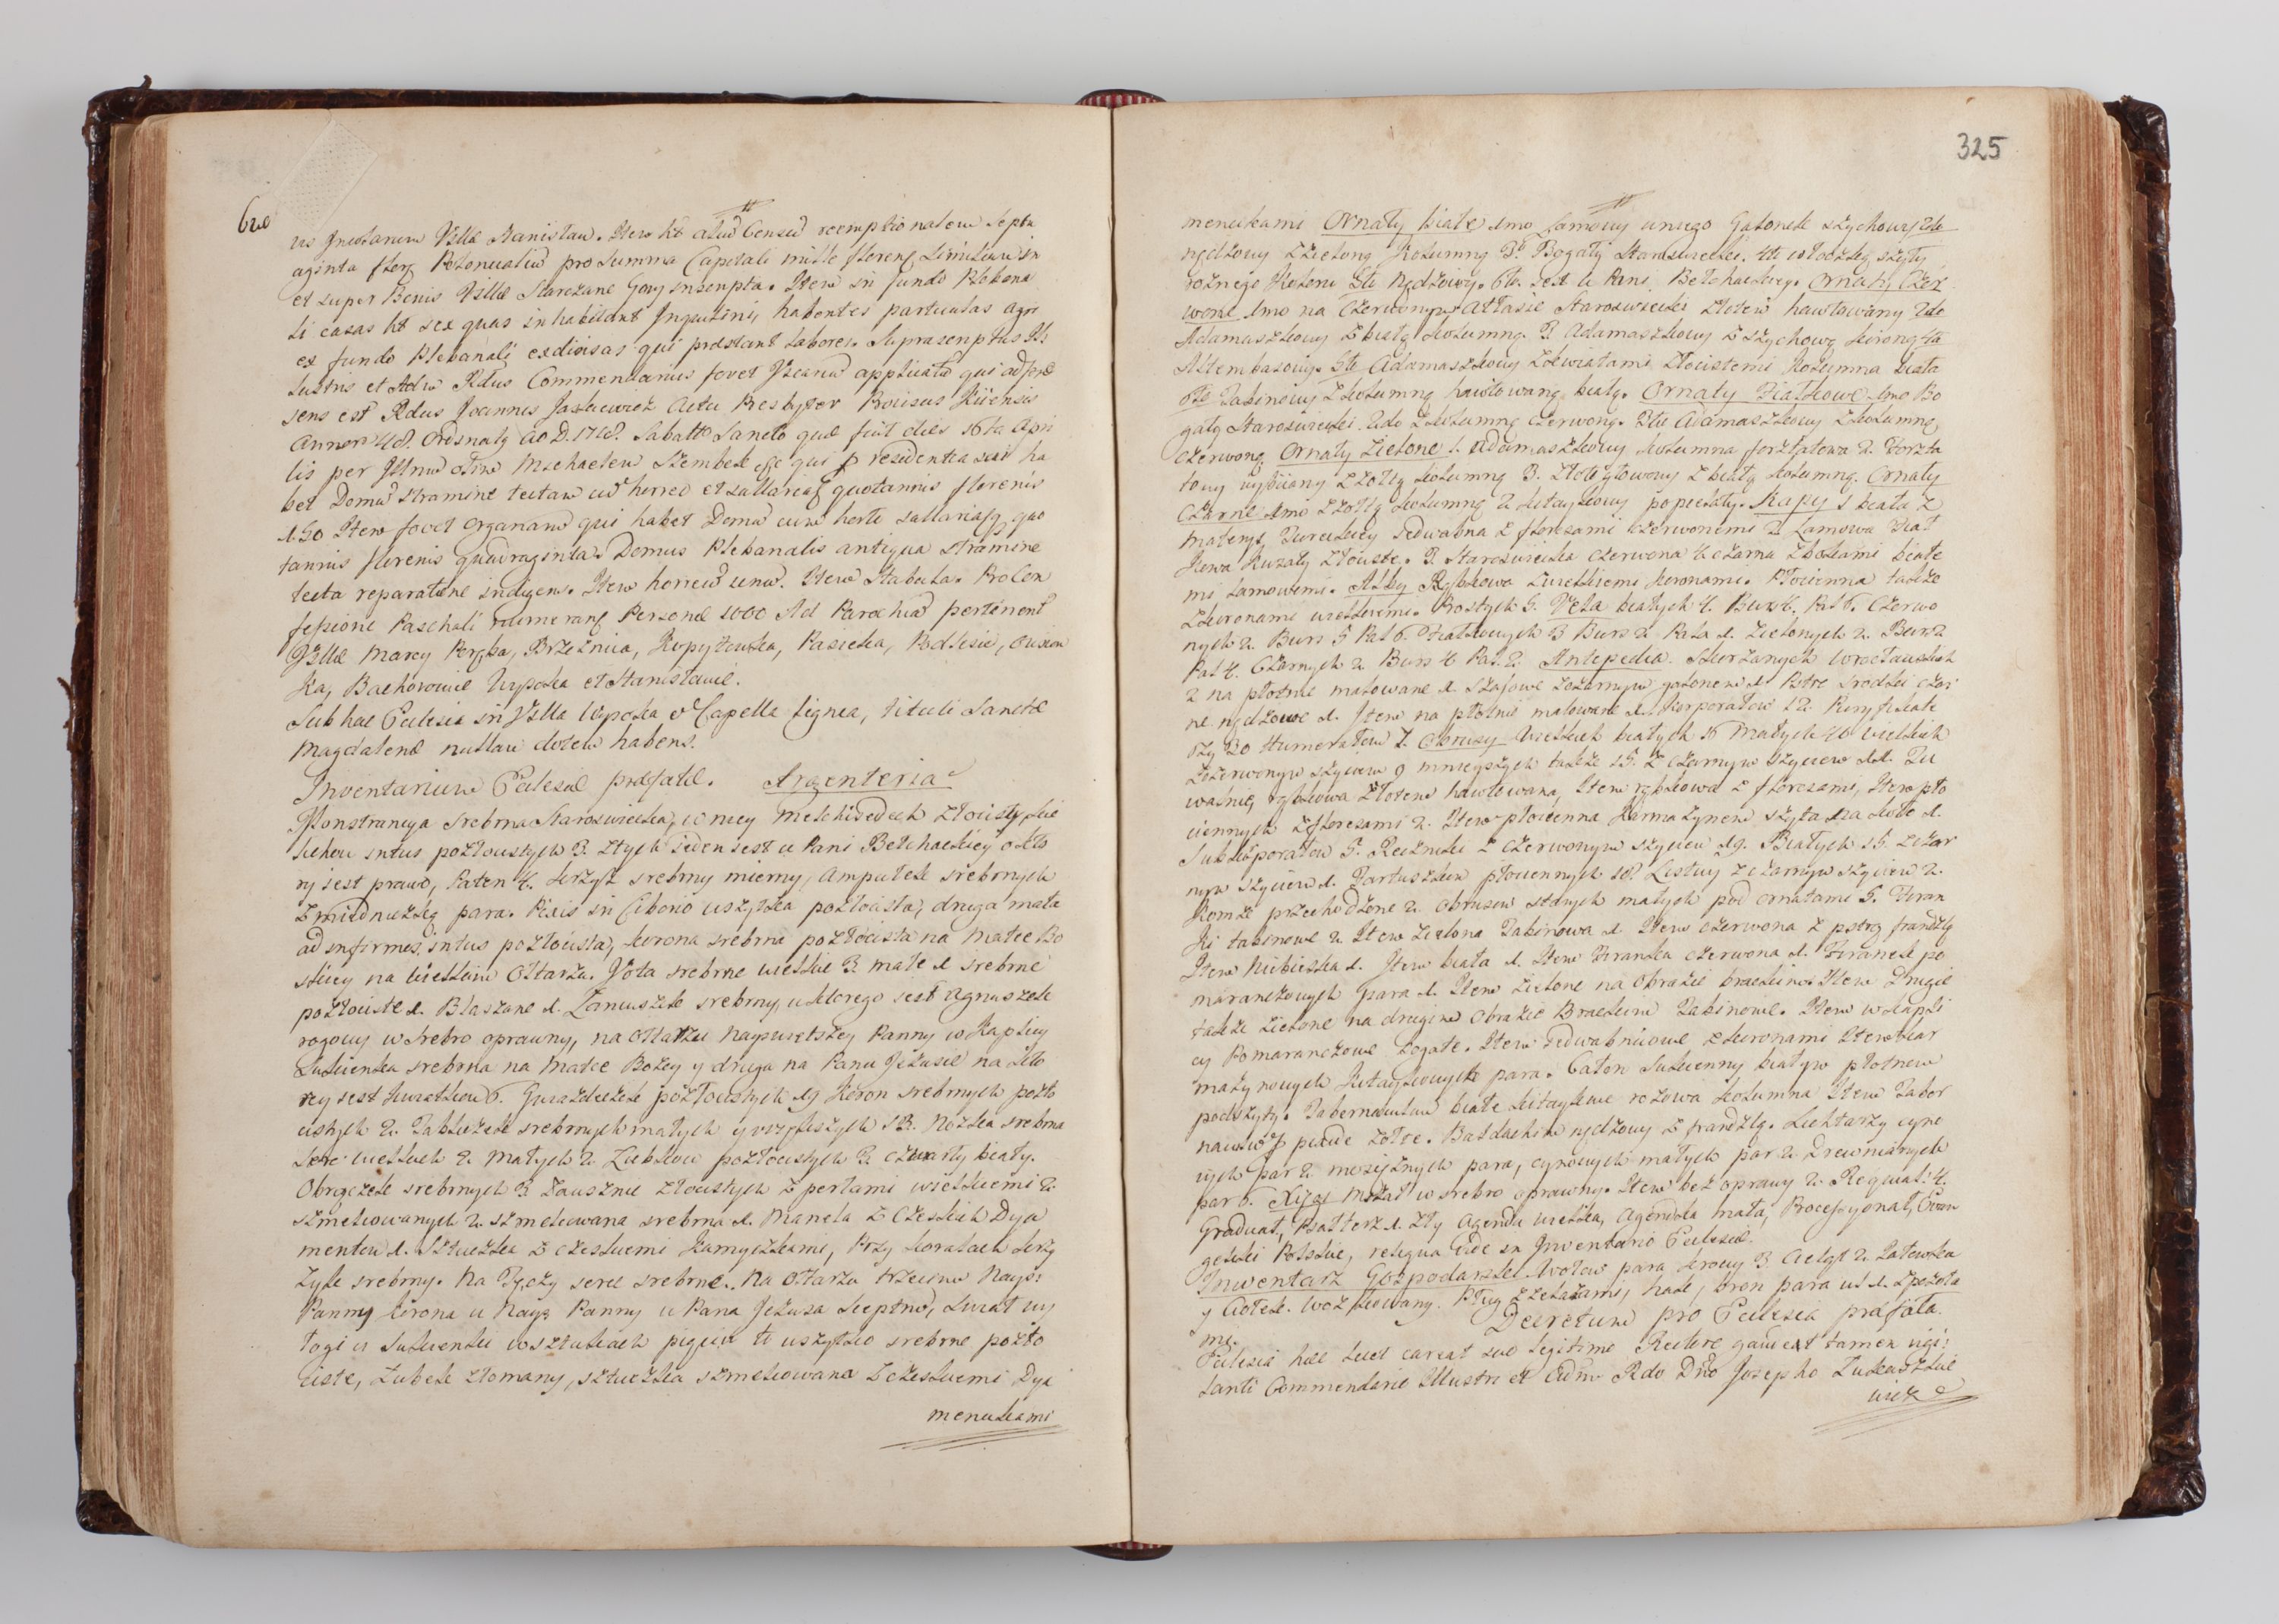 620
us Villæ Stanisław. Item ht aliud Censum reemptionalem septu
aginta flor Polonicalium pro Summa Capitali mille floren similium in
et super Bonis Villæ Starczane Gory inscripta. Item in fundo Plebana
li casas ht sex quas inhabitant Inquilini, habentes particulas agri
ex fundo Plebanali exdivisas qui præstant labores. Suprascriptus Ill
lustris et Adm Rdus Commendarius fovet Vicarium applicatum qui ad præ
sens est Rdus Joannes Jaskiewicz actu Presbyter
Annor 48. Ordinatg AO D. 1748. Sabatto Sancto quæ fuit dies 16ta Apri
lis per Illmum olim Michaelem Szembek qui p residentia sua ha
bet Domum stramine tectam cum horreo et sallariatg quotannis florenis
150 Item fovet Organarium qui habet Domum cum horto sallariatg quo
tannis florenis quadraginta. Domus Plebanalis antiqua stramine
tecta reparatione indigens. Item horreum unum. Item stabula. Pro Con
fessione Paschali numerang Personæ 1000 Ad Parochiam pertinent
Villæ Marcy Poręba, Brzeźnica, Kopytowka, Pasieka, Podlesie,
ka, Bachorowice Wysoka et Stanisławie.
Sub hac Ecclesia in Villa Wysoka e Capella lignea, tituli Sanctæ
Magdalenæ nullam dotem habens.
Inventarium Ecclesiæ præfatæ. Argenteria
Monstrancya srebrna Staroswiecka, w niey Melchisedech złocisty, Kie
lichow intus pozłocistych 3. z tych ieden iest u Pani Bełchackiey o kto
ry iest prawo, Paten 4. krzyż srebrny mierny, Ampułek srebrnych
z miednuszką para. Pixis in Ciborio wszytka pozłocista, druga mała
ad infirmos, intus pozłocista, korona srebrna pozłocista na Matce Bo
skiey na wielkim Ołtarzu. Vota srebrne wielkie 3. małe 1 srebrne
pozłociste 1. Blaszane 1. Łancuszek srebrny, u ktorego iest Agnuszek
rogowy w srebro oprawny, na Ołtarzu Nayswiętszey Panny w Kaplicy
Sukienka srebrna na Matce Bożey y druga na Panu Jezusie na kto
rey iest kwiatkow 6. Gwiazdeczek pozłocistych 19 koron srebrnych pozło
cistych 2. Tabliczek srebrnych małych y większych 13. Nozka srebrna
Serc wielkich 2. małych 2. Ząbkow pozłocistych 3. czwarty biały.
Obrączek srebrnych 3. zausznic złocistych z perłami wielkiemi 2.
szmelcowanych 2. szmelcowana srebrna 1. Manela z Czeskich Dya
mentow 1. Sztuczka z czeskiemi kamyczkami, Przy koralach krzy
żyk srebrny. Na Tęczy serce srebrne. Na Ołtarzu trzecim Nayś:
Panny korona u Nayś Panny u Pana Jezusa Sceptrum, Swiat wy
łogi u Sukienki w sztukach pięciu to wszytko srebrne pozło
ciste, Ząbek złomany, sztuczka szmelcowana z czeskiemi Dya
menuikami
325
menuikami Ornaty białe 1mo Lamowy Galonek szychowy 2do
nędzowy z zieloną kolumną 3o Bogaty Staroswiecki. 4to włoczką szyty
rożnego koloru 5to Rędzowy. 6to iest u Pani Bełchackiey. Ornaty Czer
wone 1mo na Czerwonym Atłasie Staroswiecki złotem haftowany 2do
Adamaszkowy z białą kolumną. 3. Adamaszkowy z szychową koroną 4to
Altembasowy. 5to Adamaszkowy z kwiatami złocistemi kolumna biała
6to Tabinowy z kolumną haftowaną białą. Ornaty Fiałkowe 1mo Bo
gaty Staroswiecki. 2do z kolumną czerwoną. 3tio Adamaszkowy z kolumną
czerwoną. Ornaty Zielone 1. Adamaszkowy kolumna forsztatowa 2. Forszta
towy wybiiany z żołtą kolumną 3. Złotogłowowy z białą kolumną. Ornaty
Czarne 1mo z żołtą kolumną 2. kitaykowy popielaty. Kapy 1 biała z
materyi Tureckiey iedwabna z floresami czerwonemi 2. Lamowa biał
kowa kwiaty złociste. 3. Staroswiecka czerwona 4. czarna z bokami białe
mi lamowemi. Alby Rąbkowa z wielkiemi koronami. Płocienna także
z koronami wielkiemi. Prostych 5. Vela białych 4. Burs 4. Pal 6. Czerwo
nych 2. Burs 5 Pal 6. Fiałkowych 3 Burs 2 Pala 1. Zielonych 2. Burs 2
Pal 4. Czarnych 2. Burs 4 Pal. 2. Antepedia. Skorzanych Wrocławskich
2 na płotnie malowane 1. Szafowe z czarnym galonem 1. Pstre srodki czar
ne nędzowe 1. Item na płotnie malowane 1. Korporałow 12. Puryfikate
rzy 20 Humerałow 7. Obrusy Wielkich białych 16 Małych 10 wielkich
z czerwonym szyciem 9 mnieyszych także 15. z Czarnym szyciem 11. Tu
walnie, rąbkowa złotem haftowana, Item rąbkowa z floresami, Item pło
ciennych z floresami 2. Item płocienna karmazynem szyta 1.
Subkorporałow 5. Ręczniki z czerwonym szyciem 19. Białych 15. z czar
nym szyciem 1. Fartuszkow płociennych 18. Listwy z czarnym szyciem 2.
Komże przechodzone 2. Obrusow starych małych pod ornatami 5. Firan
ki tabinowe 2. Item zielona Tabinowa 1. Item czerwona z pstrą frandzlą
Item Niebieska 1. Item biała 1. Item Firanka czerwona 1. Firanek po
maranczowych para 1. Item zielone na Obrazie brackim. Item Drugie
także zielone na drugim Obrazie Brackim Tabinowe. Item w Kapli
cy Pomaranczowe bogate. Item iedwabnicowe z koronami Item kar
mazynowych kitaykowych para. Całon Sukienny białym płotnem
podszyty. Tabernaculum białe kitaykowe rożowa kolumna Item Tabor
naculum piade żołte. Baldachim nędzowy z frandzlą. Lichtarzy cyno
wych par 2. mosiężnych para, cynowych małych par 2. Drewnianych
par 6. Xięgi Mszał w srebro oprawny. Item bez oprawy 2. Requial: 4.
Graduał, Psałterz 1. zły Agenda wielka, Agendka mała, Processyonał, Ewan
geliczki Polskie, reliqua vide in Inventario Ecclesiæ.
Inwentarz Gospodarski. Wołow para krowy 3. Cieląt 2. Jałowka
y Ciołek. Woz kowany. Pług z żelazami, hak, bron para ul 1. z pszczoła
mi. Decretum pro Ecclesia præfata.
Ecclesia hæc licet careat suo legitimo Rectore gaudeat tamen vigi:
lanti Commendario Illustri et Adm Rdo Dno Josepho Łukaszkie
wicz